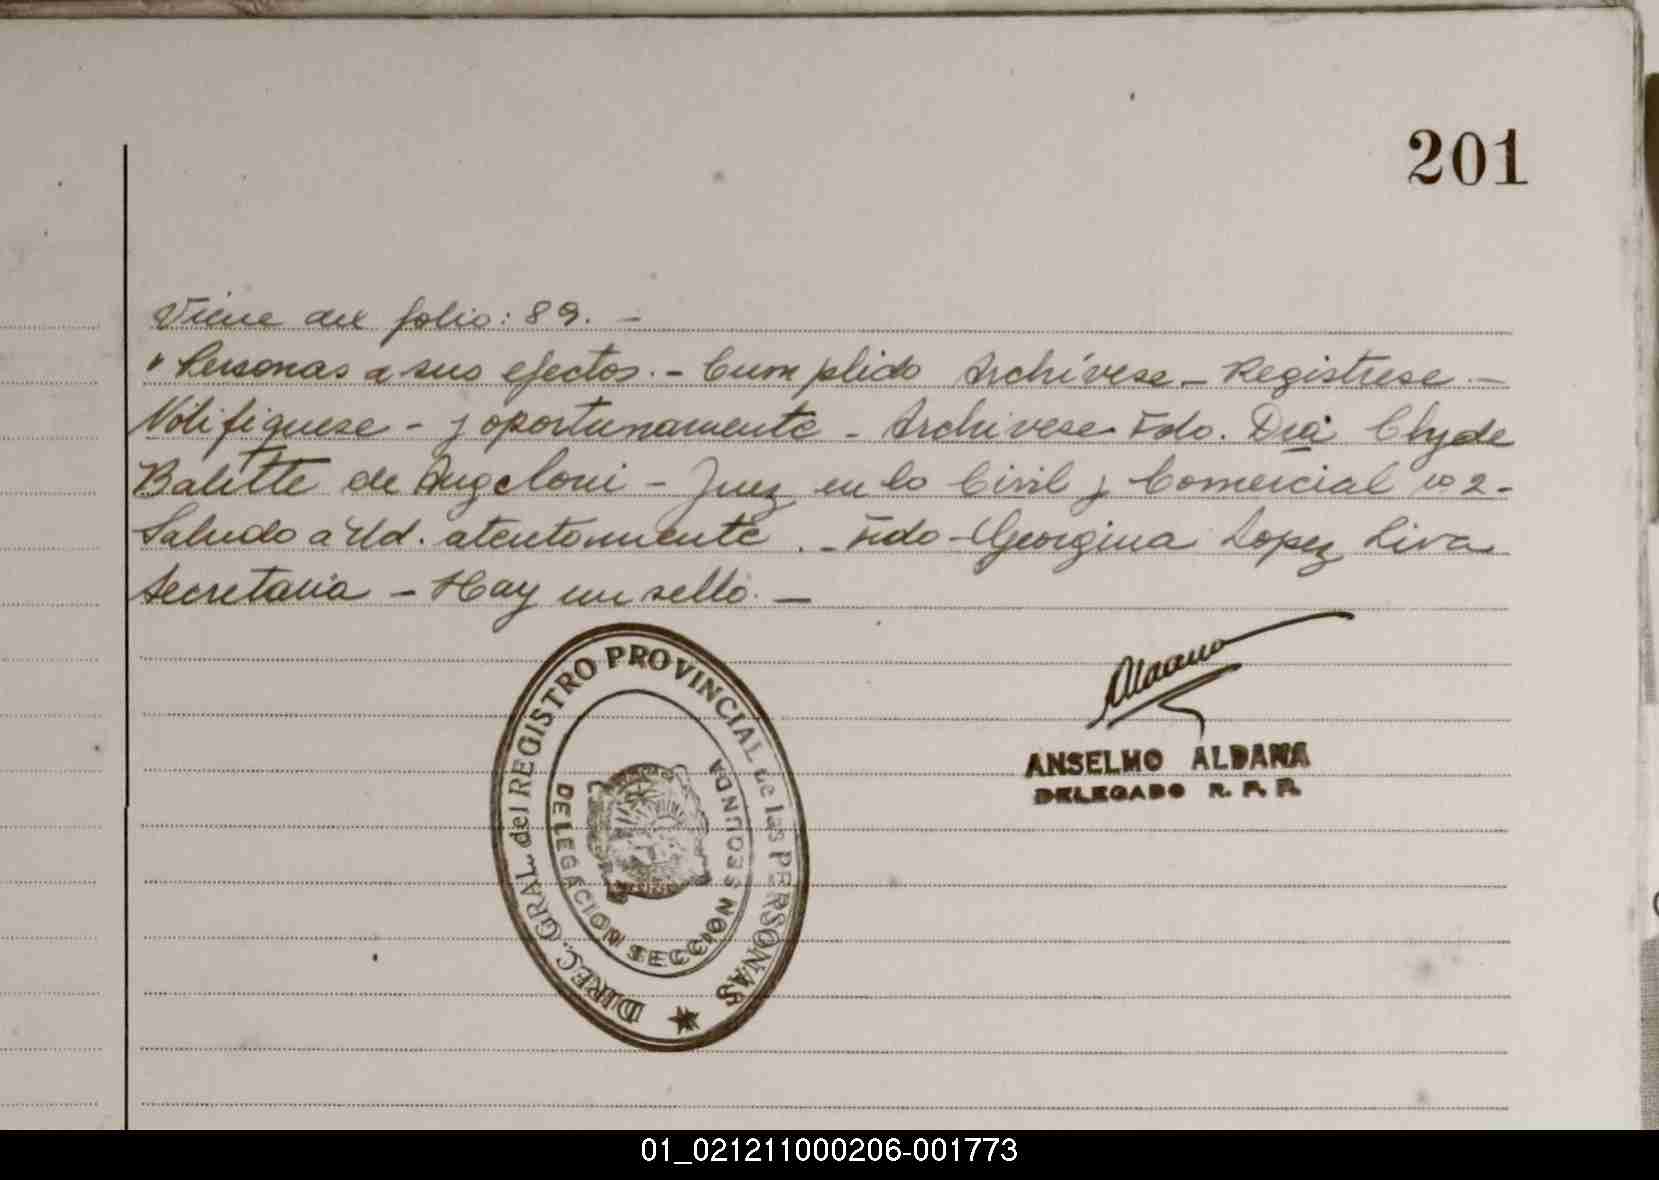 201
Viene del folio: 89. -
" Personas a sus efectos. - Cumplido Archívese - Registrese. -
Notifiquese - y oportunamente - Archivese Fdo. Dra Clyde
Balette de Angeloni - Juez en lo Civil y Comercial nº 2 -
Saludo a Ud. atentamente. - Fdo - Georgina Lopez Liva
Secretaria - Hay un sello. -
Aldana
ANSELMO ALDANA
DELEGADO R. P. P.
DIREC. GRAL del REGISTRO PROVINCIAL de las PERSONAS
DELEGACION SECCION SEGUNDA
01_021211000206-001773